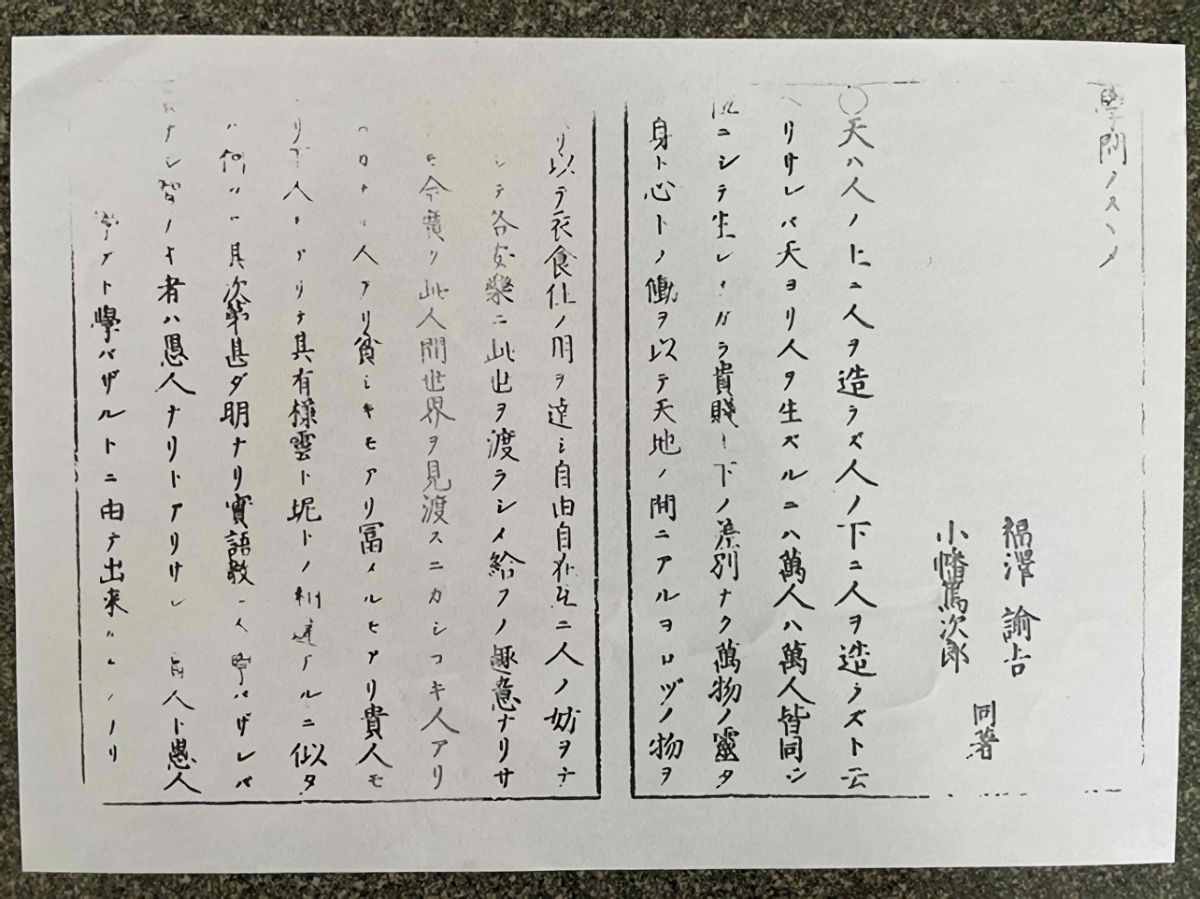 學問ノスヽメ
福澤諭吉
小幡篤次郎
同著
○天ハ人ノ上ニ人ヲ造ラズ人ノ下ニ人ヲ造ラズト云
ヘリサレバ天ヨリ人ヲ生ズルニハ萬人ハ萬人皆同ジ
位ニシテ生レナガラ貴賤上下ノ差別ナク萬物ノ靈タ
身ト心トノ働ヲ以テ天地ノ間ニアルヨロヅノ物ヲ
以テ衣食住ノ用ヲ達シ自由自在互ニ人ノ妨ヲナ
シテ各安樂ニ此世ヲ渡ラシメ給フノ趣意ナリサ
今廣ク此人間世界ヲ見渡スニカシコキ人アリ
人アリ貧シキモアリ冨メルモアリ貴人モ
リ下人モアリテ其有様雲ト坭トノ相違アルニ似タ
何ゾヤ其次第甚ダ明ナリ實語教ニ人學バザレバ
ナシ智ナキ者ハ愚人ナリトアリサレ人ト愚人
學ブト學バザルトニ由テ出来ルモノナリ